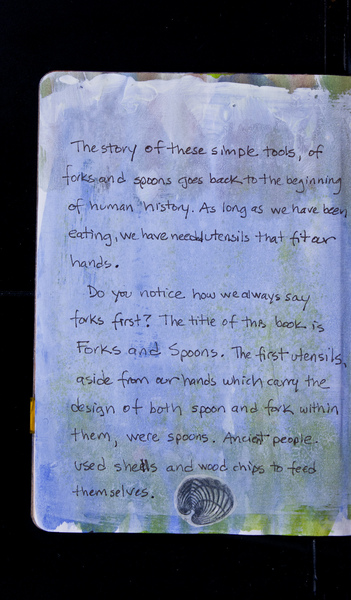 The story of these simple tools, of
forks and spoons goes back to the beginning
of human history. As long as we have been
eating, we have needed utensils that fit our
hands.
Do you notice how we always say
forks first? The title of this book is
Forks and Spoons. The first utensils,
aside from our hands which carry the
design of both spoon and fork within
them, were spoons. Ancient people
used shells and wood chips to feed
themselves.